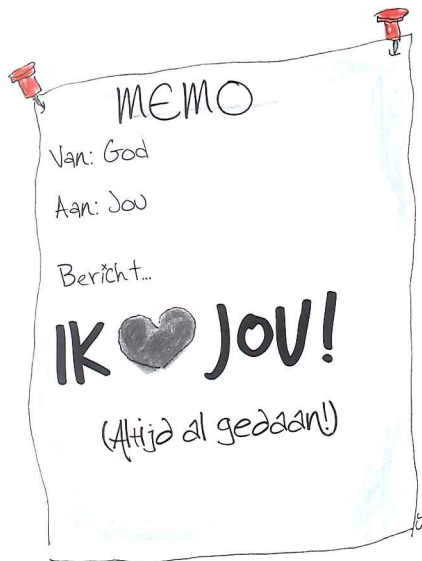 MEMO
Van: God
Aan: Jou
Bericht...
IK ♥ JOU!
(Altijd al gedaan!)